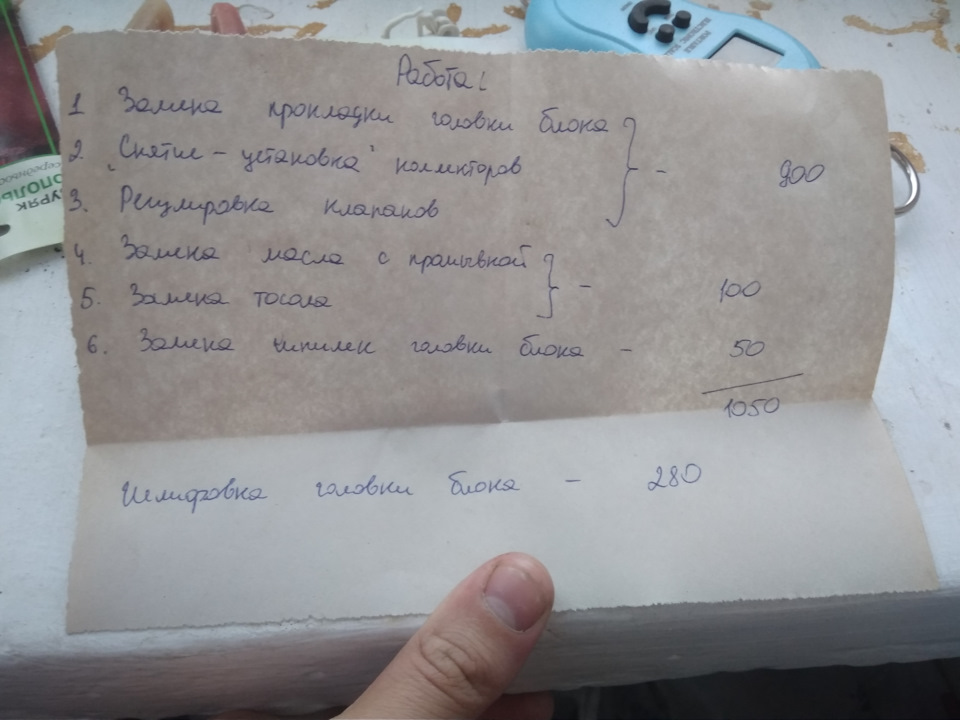 Работа:
1 Замена прокладки головки блока
2. "Снятие - установка" коллекторов - 900
3. Регулировка клапанов
4. Замена масла с промывкой
5. Замена тосола - 100
6. Замена шпилек головки блока - 50
1050
Шлифовка головки блока - 280